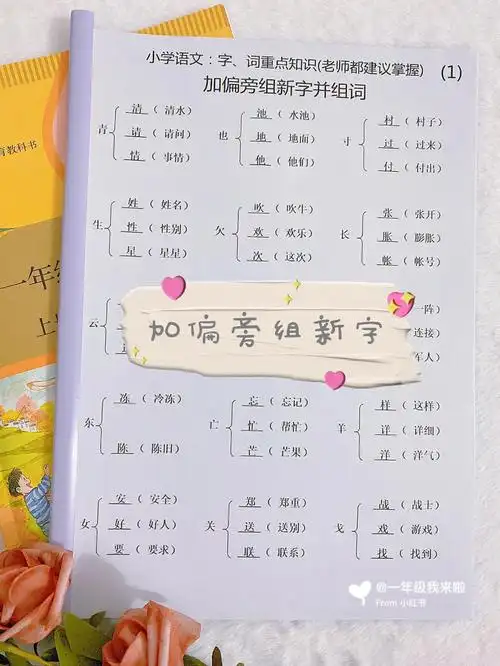 小学语文：字、词重点知识(老师都建议掌握) (1)
加偏旁组新字并组词
清（清水） 池（水池） 村（村子）
青 请（请问） 也 地（地面） 寸 过（过来）
情（事情） 他（他们） 付（付出）
姓（姓名） 吹（吹牛） 张（张开）
生 性（性别） 欠 欢（欢乐） 长 胀（膨胀）
星（星星） 次（这次） 帐（帐号）
云 一阵）
连接）
军人）
加偏旁组新字
冻（冷冻） 忘（忘记） 样（这样）
东 亡 忙（帮忙） 羊 详（详细）
陈（陈旧） 芒（芒果） 洋（洋气）
安（安全） 郑（郑重） 战（战士）
女 好（好人） 关 送（送别） 戈 戏（游戏）
要（要求） 联（联系） 找（找到）
育教科书
一年级
上
@一年级我来啦
From 小红书